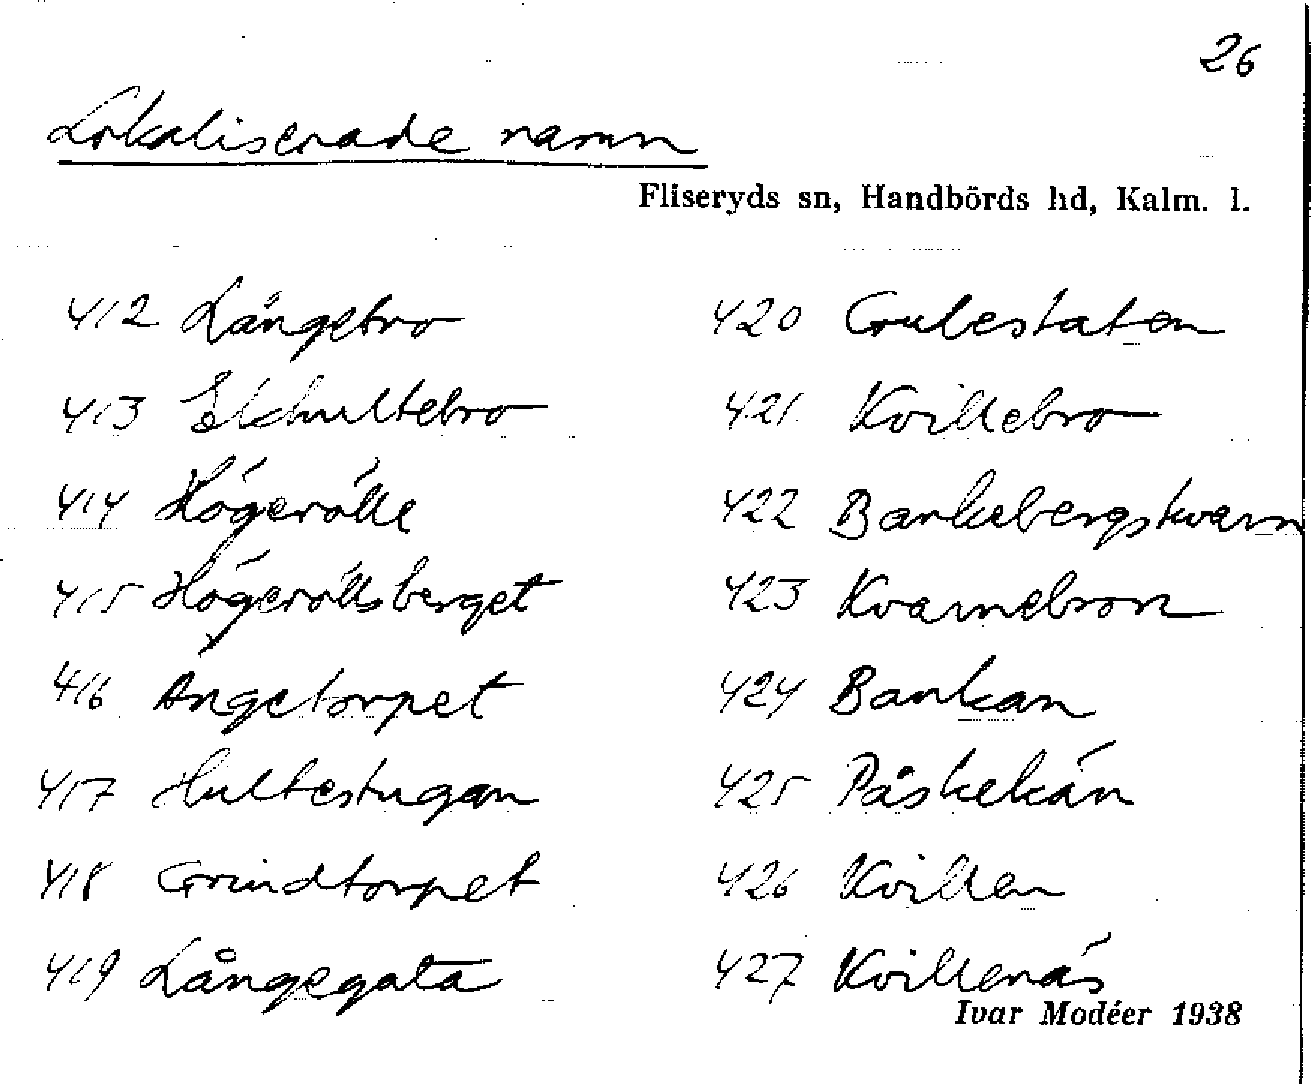 26
Lokaliserade namn
Fliseryds sn, Handbörds hd, Kalm. l.
412 Långebro
413 Elshultebro
414 Högerölle
415 Högeröllsberget
416 Ängetorpet
417 Hultestugan
418 Grindtorpet
419 Långegata
420 Grubestaten
421 Kvillebro
422 Bankebergskvarn
423 Kvarnebron
424 Bankan
425 Påskekän
426 Kvillen
427 Kvillenäs
Ivar Modéer 1938